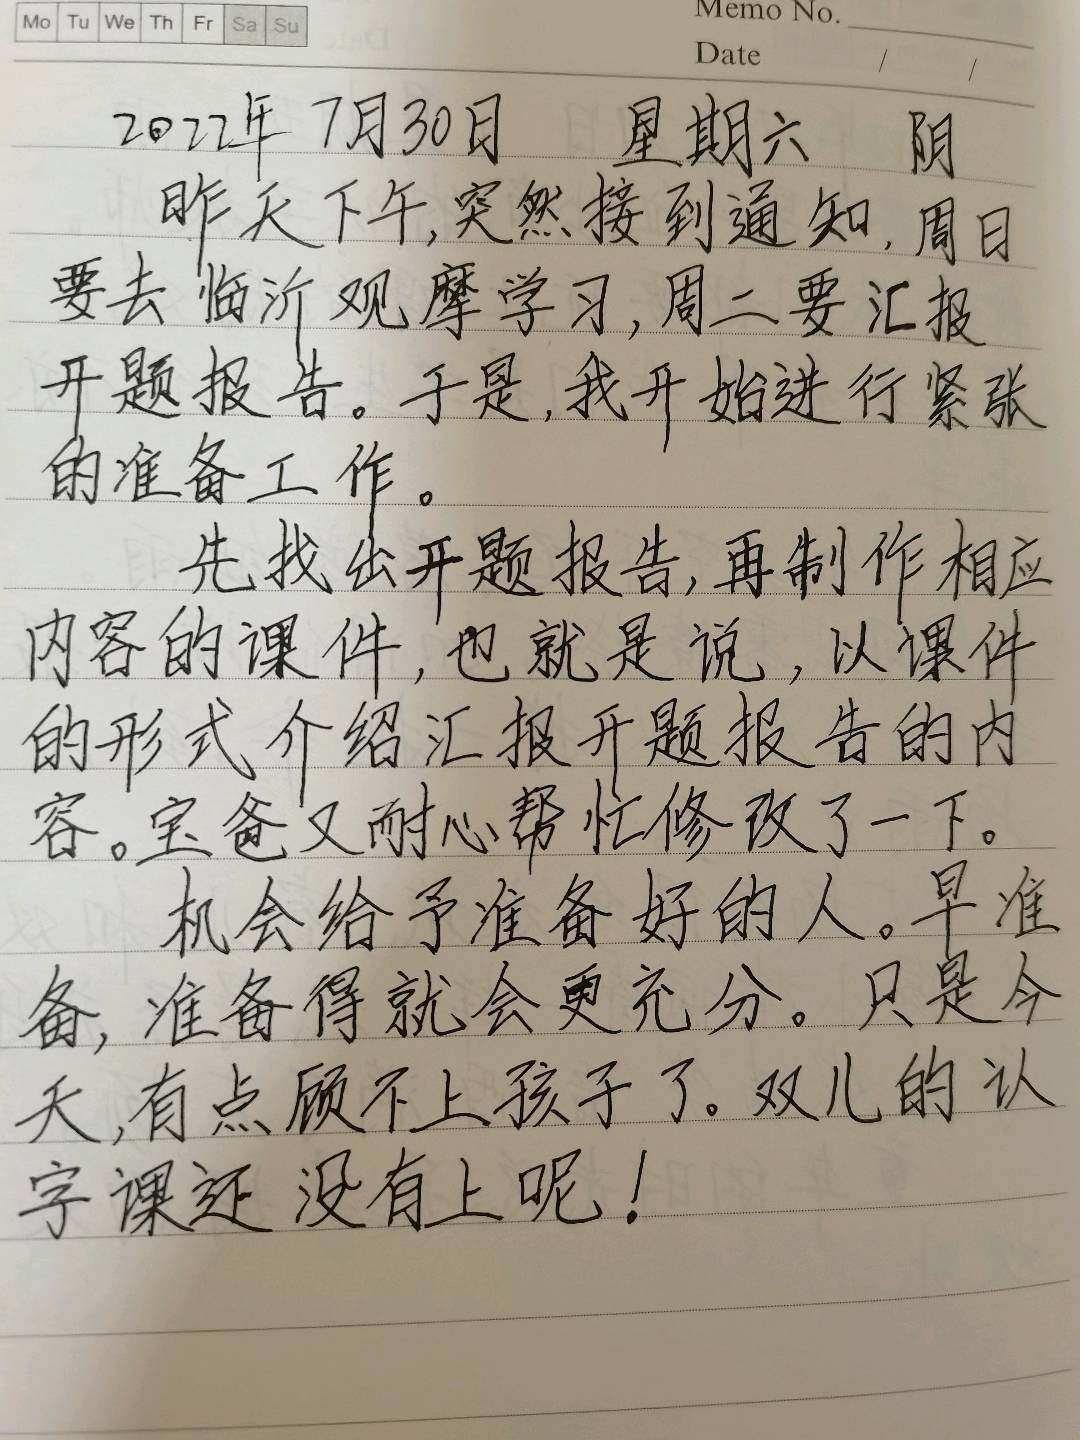 Mo Tu We Th Fr Sa Su
Memo No.
Date / /
2022年7月30日 星期六 阴
昨天下午,突然接到通知,周日
要去临沂观摩学习,周二要汇报
开题报告。于是,我开始进行紧张
的准备工作。
先找出开题报告,再制作相应
内容的课件,也就是说,以课件
的形式介绍汇报开题报告的内
容。宝爸又耐心帮忙修改了一下。
机会给予准备好的人。早准
备,准备得就会更充分。只是今
天,有点顾不上孩子了。双儿的认
字课还没有上呢!